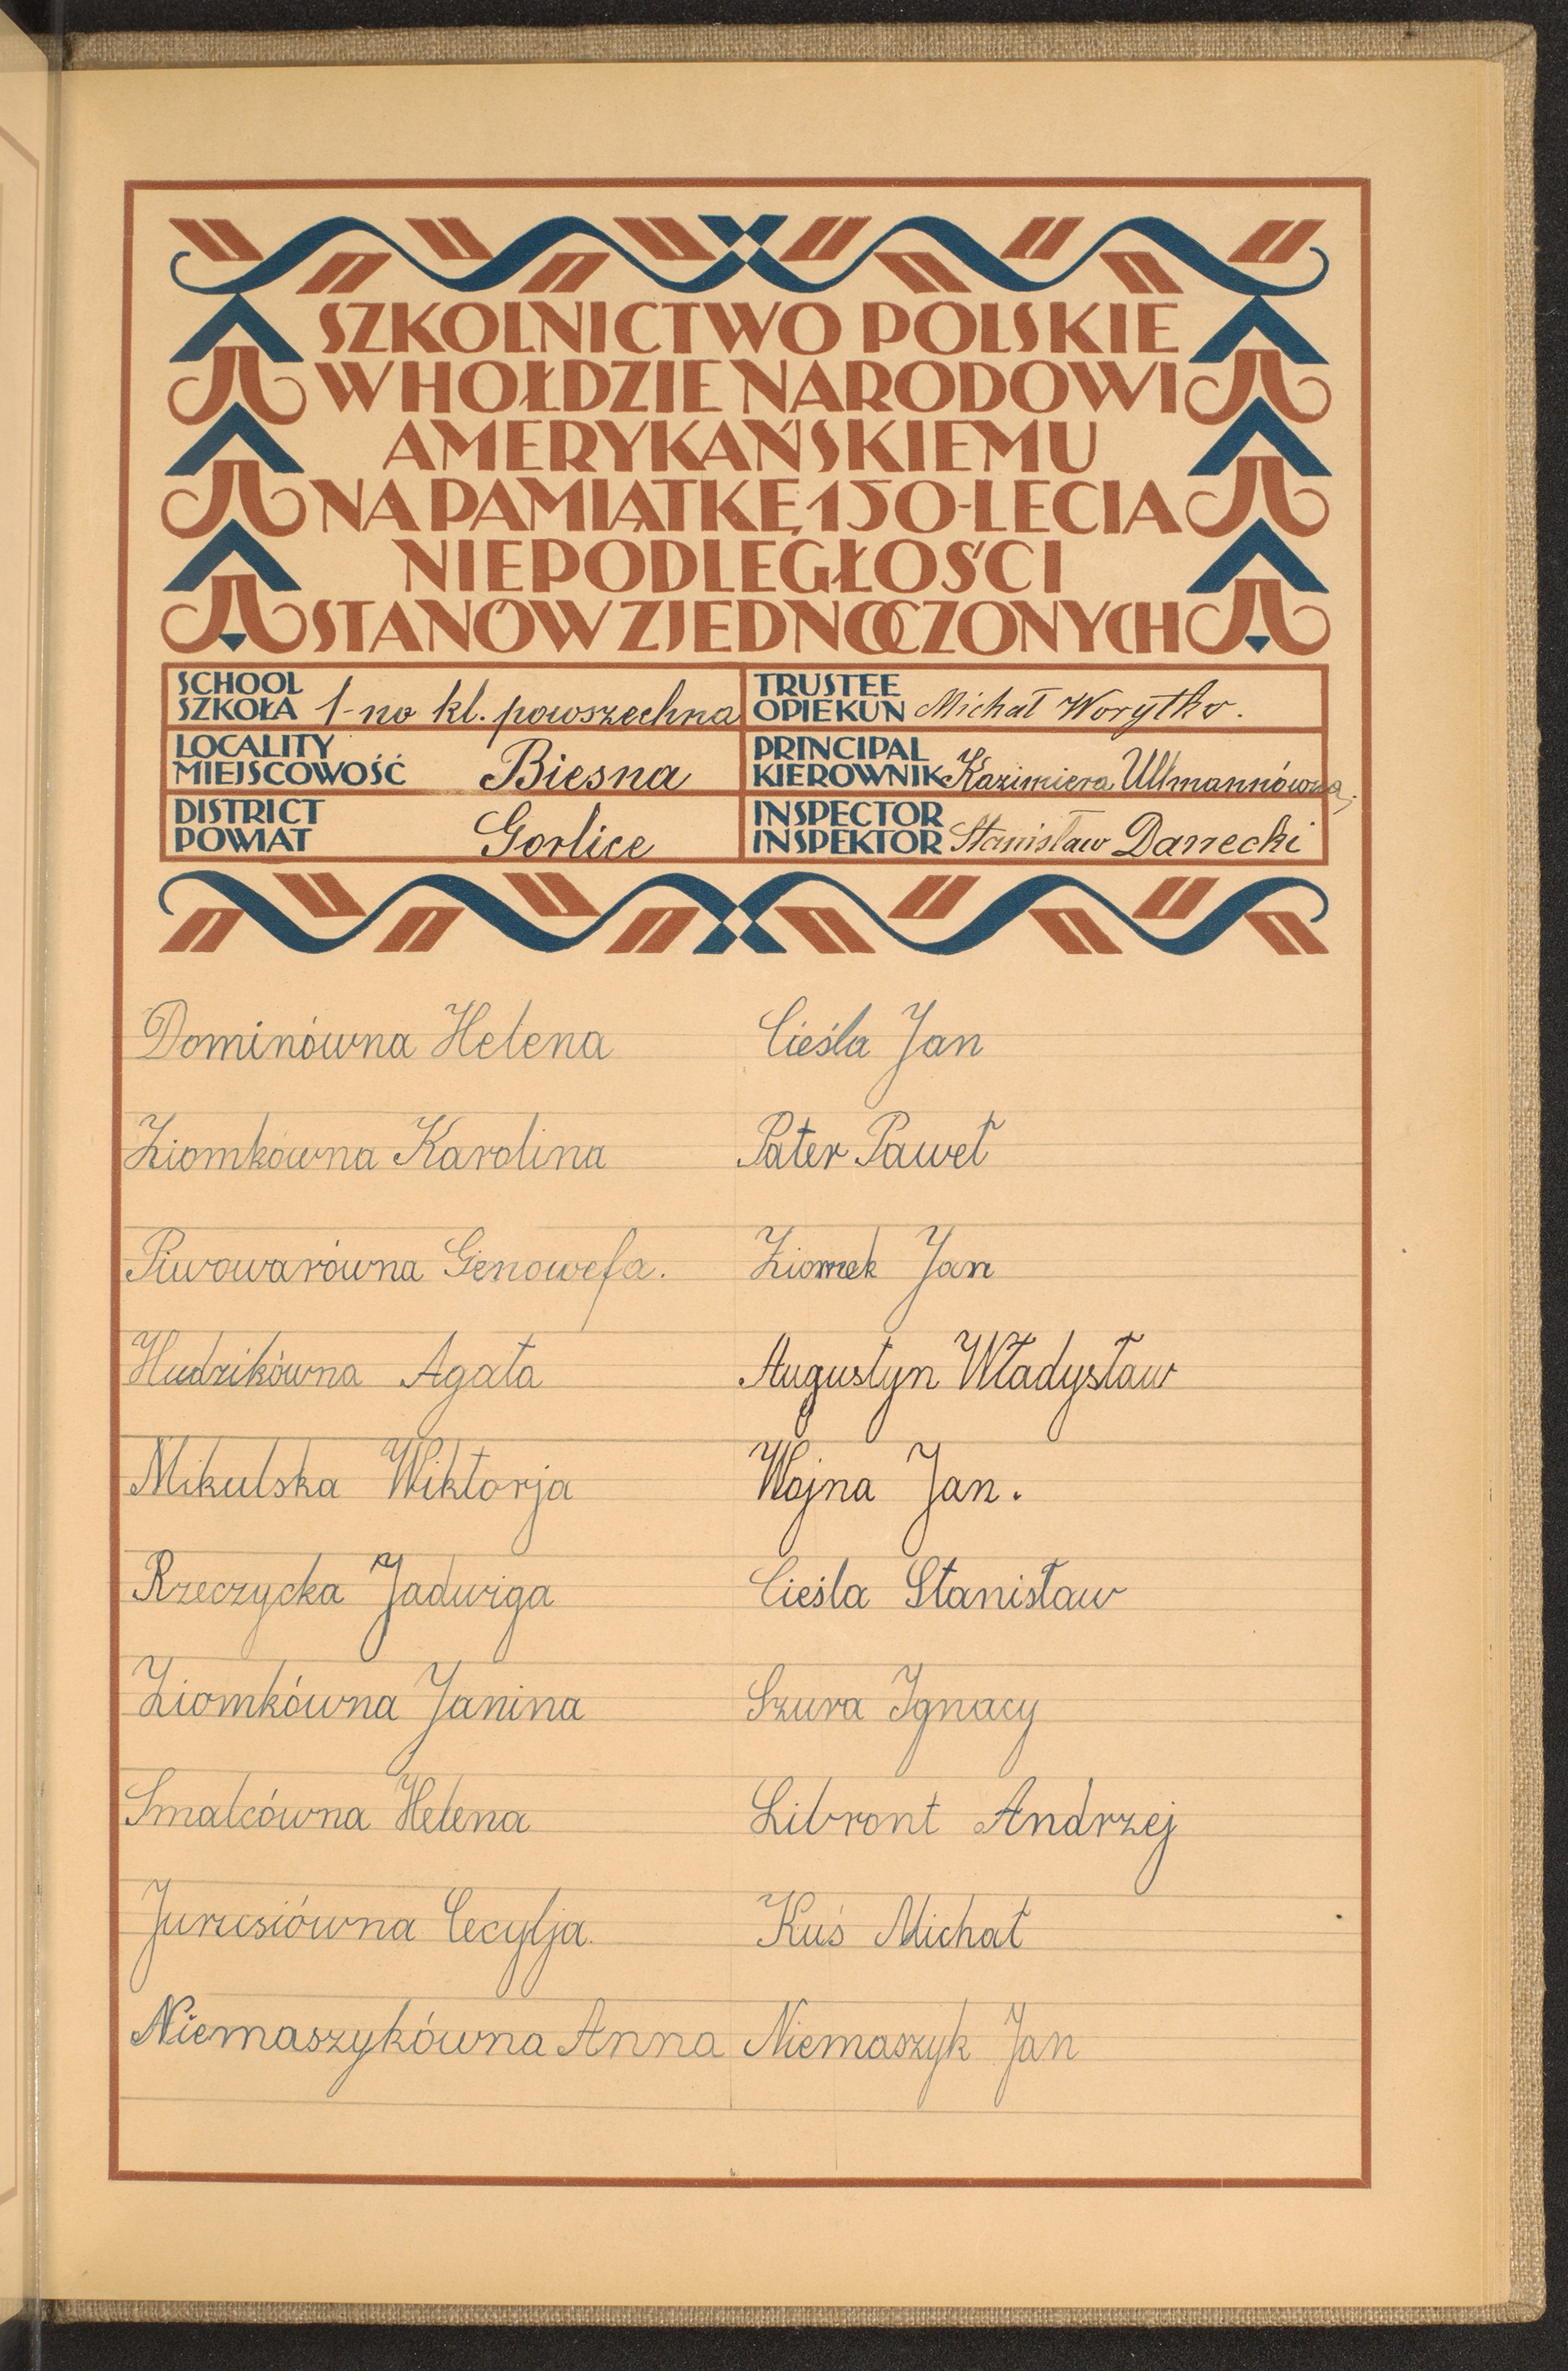 SZKOLNICTWO POLSKIE
W HOŁDZIE NARODOWI
AMERYKAŃSKIEMU
NA PAMIĄTKĘ 150-LECIA
NIEPODLEGŁOŚCI
STANÓW ZJEDNOCZONYCH
SCHOOL
SZKOŁA 1-no kl. powszechna
TRUSTEE
OPIEKUN Michał Worytko.
LOCALITY
MIEJSCOWOŚĆ Biesna
PRINCIPAL
KIEROWNIK Kazimiera Ullmannówna;
DISTRICT
POWIAT Gorlice
INSPECTOR
INSPEKTOR Stanisław Darrecki
Dominówna Helena
Cieśla Jan
Ziomkówna Karolina
Pater Paweł
Piwowarówna Genowefa.
Ziomek Jan
Hudzikówna Agata
Augustyn Władysław
Mikulska Wiktorja
Wojna Jan.
Rzeczycka Jadwiga
Cieśla Stanisław
Ziomkówna Janina
Szura Ignacy
Smalcówna Helena
Libront Andrzej
Jurusiówna Cecylja.
Kuś Michał
Niemaszykówna Anna
Niemaszyk Jan